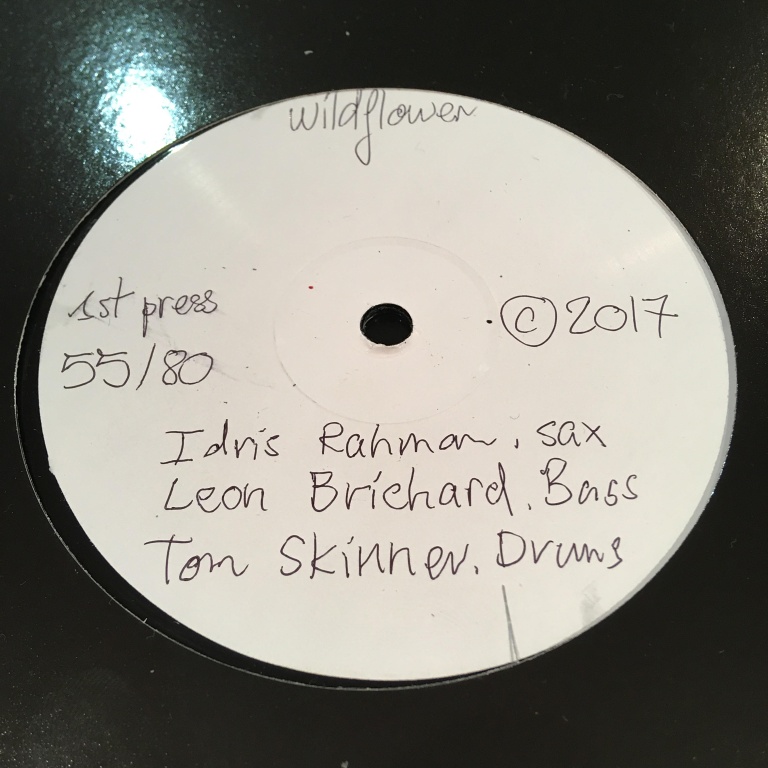 wildflower
1st press
55/80
© 2017
Idris Rahman, sax
Leon Brichard, Bass
Tom Skinner, Drums